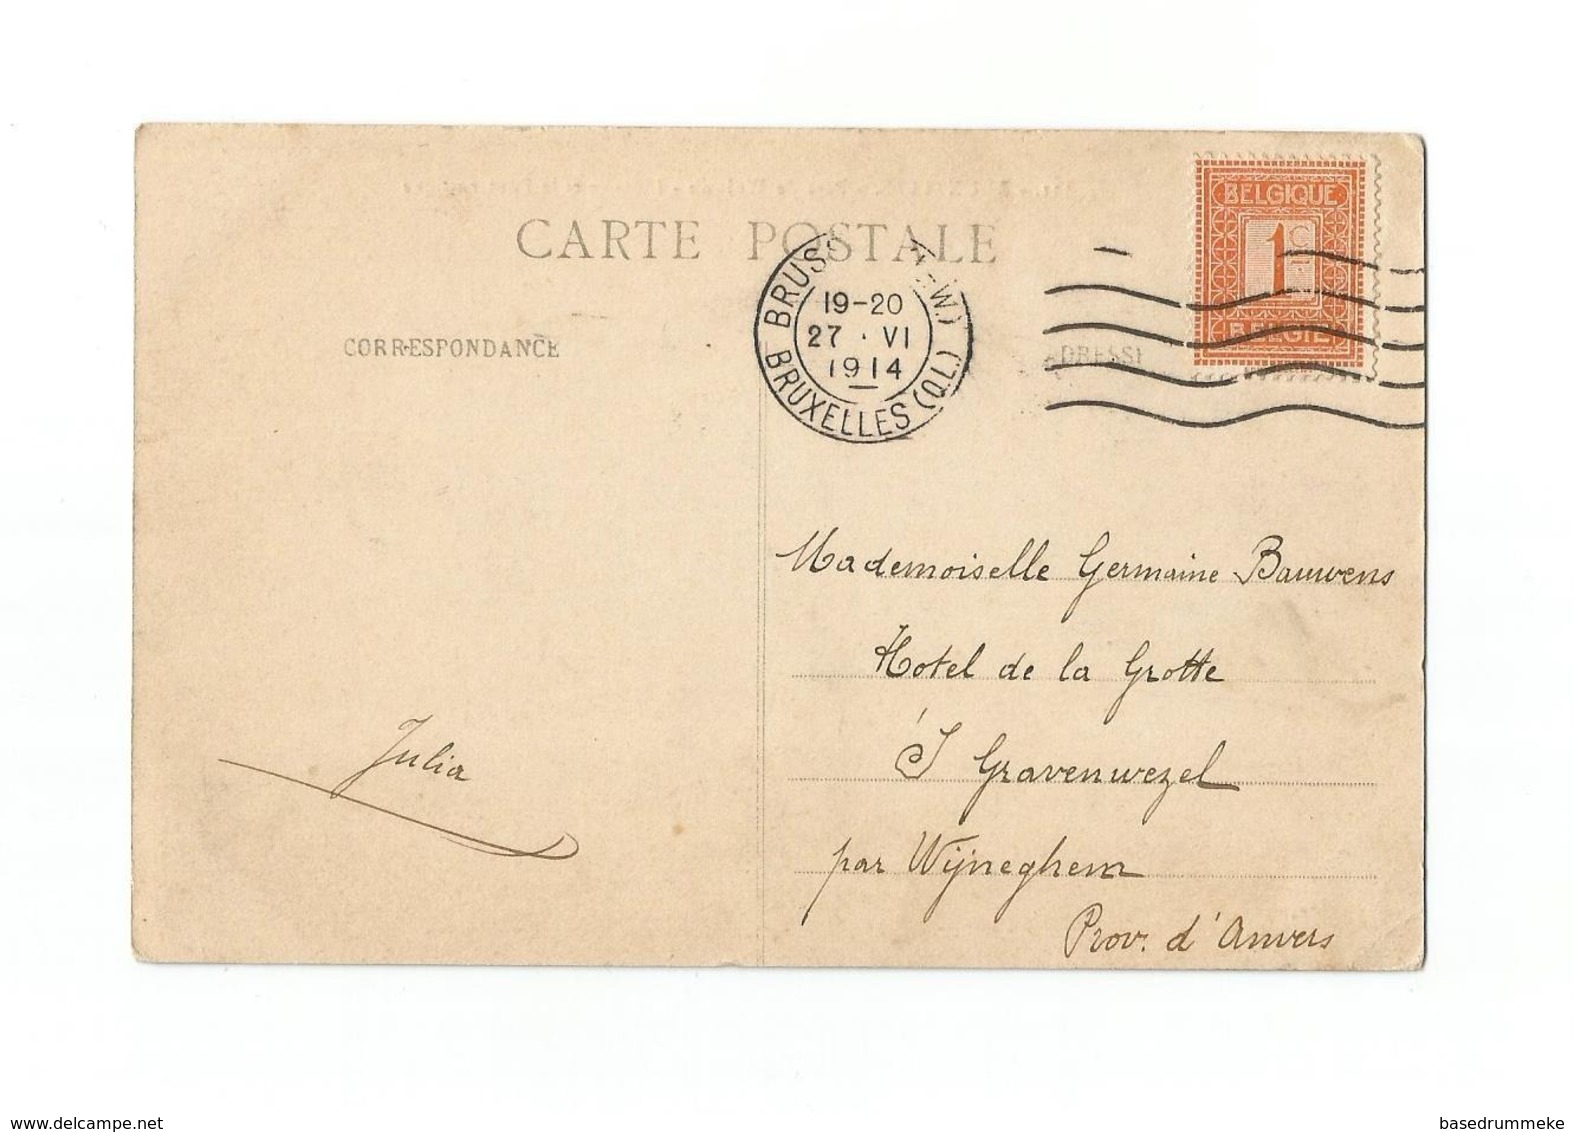 CARTE POSTALE
BELGIQUE
1C
BELGIË
BRUSS W.)
19-20
27 . VI
1914
BRUXELLES (Q.L.)
CORRESPONDANCE
Mademoiselle Germaine Bauwens
Hotel de la Grotte
'S Gravenwezel
par Wijneghem
Prov. d'Anvers
Julia
www.delcampe.net
basedrummeke